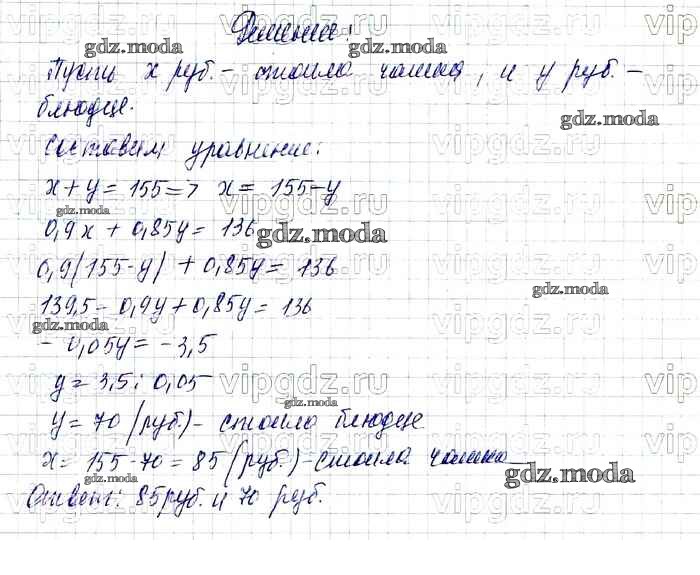 Решение:
Пусть x руб. - стоила чашка, и y руб. -
блюдце.
Составим уравнение:
x + y = 155 => x = 155 - y
0,9x + 0,85y = 136
0,9(155-y) + 0,85y = 136
139,5 - 0,9y + 0,85y = 136
- 0,05y = -3,5
y = 3,5 : 0,05
y = 70 (руб.) - стоило блюдце
x = 155 - 70 = 85 (руб.) - стоила чашка
Ответ: 85 руб. и 70 руб.
gdz.moda
vipgdz.ru